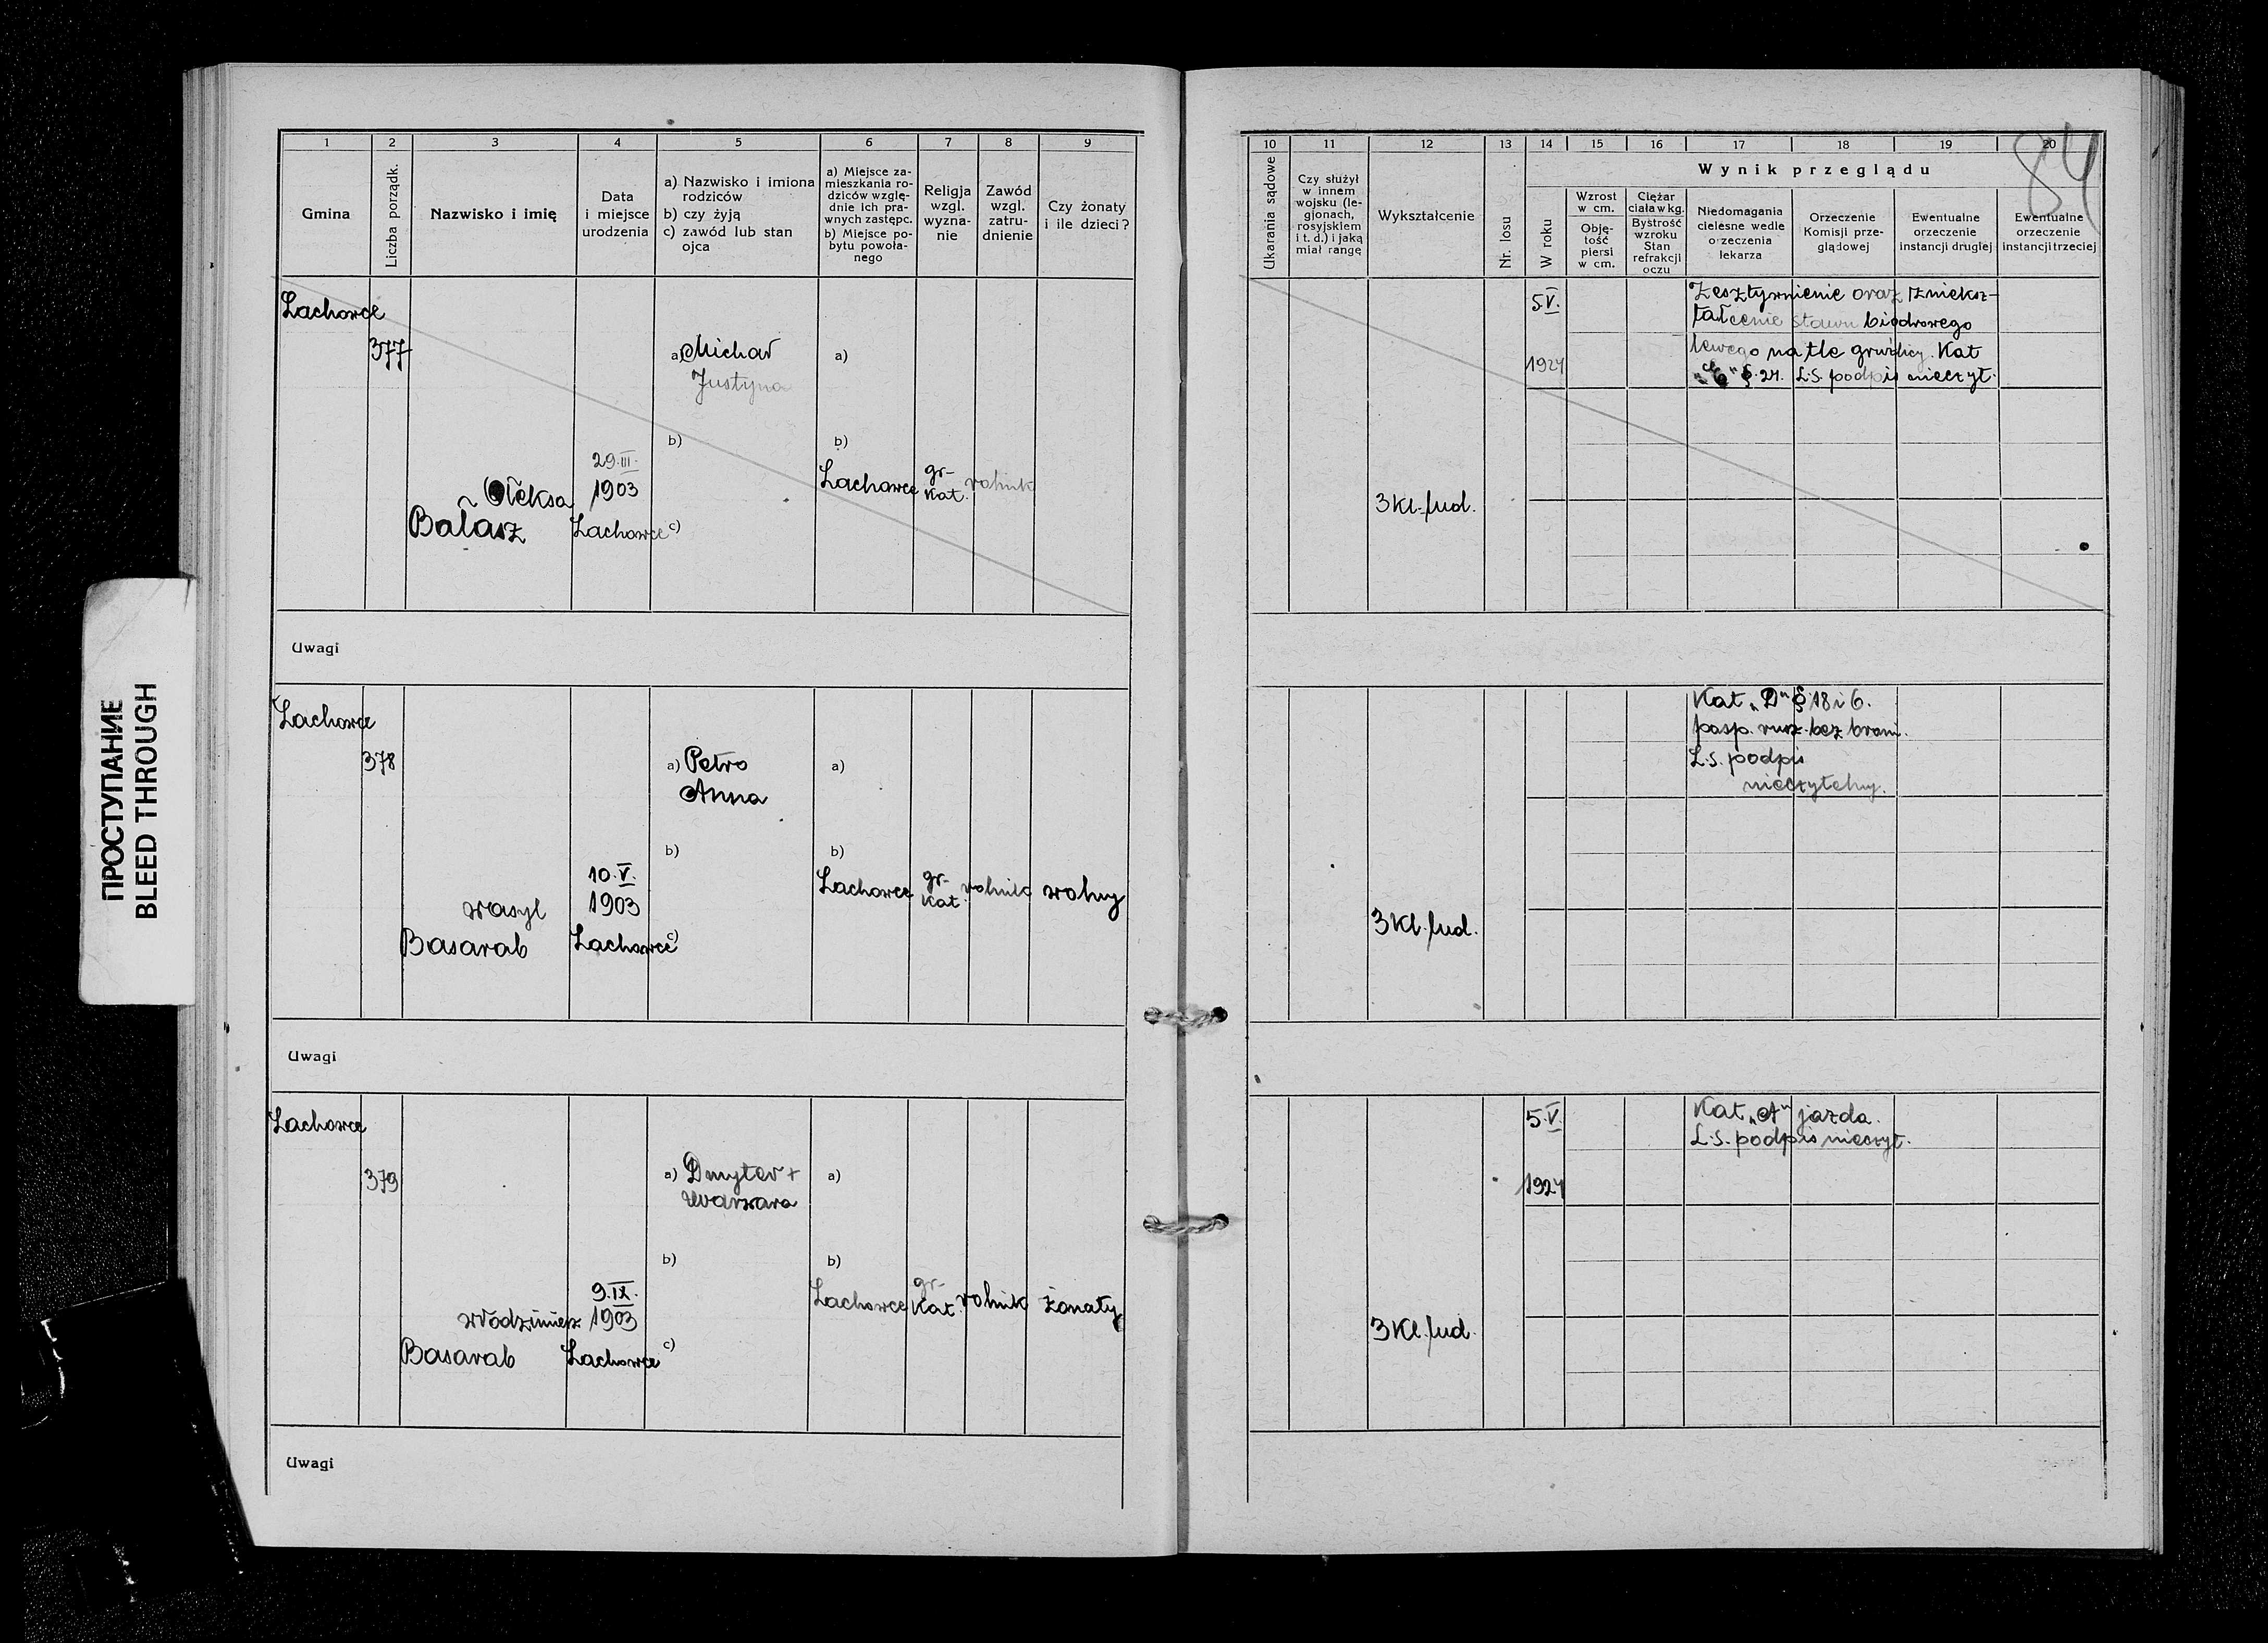 84
1 2 3 4 5 6 7 8 9
Gmina
Liczba porządk.
Nazwisko i imię
Data
i miejsce
urodzenia
a) Nazwisko i imiona
rodziców
b) czy żyją
c) zawód lub stan
ojca
a) Miejsce za-
mieszkania ro-
dziców wzglę-
dnie ich pra-
wnych zastępc.
b) Miejsce po-
bytu powoła-
nego
Religja
wzgl.
wyzna-
nie
Zawód
wzgl.
zatru-
dnienie
Czy żonaty
i ile dzieci?
Lachowce
377
Ołeksa
Bałasz
29.III.
1903
Lachowce
a) Michał
Justyna
b)
c)
a)
b)
Lachowce
gr-
kat.
rolnik
Uwagi
Lachowce
378
Wasyl
Basarab
10.V.
1903
Lachowce
a) Petro
Anna
b)
c)
a)
b)
Lachowce
gr-
kat.
rolnik
wolny
Uwagi
Lachowce
379
Włodzimierz
Basarab
9.IX.
1903
Lachowce
a) Dmyter +
Warwara
b)
c)
a)
b)
Lachowce
gr-
kat.
rolnik
żonaty
Uwagi
10 11 12 13 14 15 16 17 18 19 20
Ukarania sądowe
Czy służył
w innem
wojsku (le-
gjonach,
rosyjskiem
i t. d.) i jaką
miał rangę
Wykształcenie
Nr. losu
W roku
Wynik przeglądu
Wzrost
w cm.
Obję-
tość
piersi
w cm.
Ciężar
ciała w kg.
Bystrość
wzroku
Stan
refrakcji
oczu
Niedomagania
cielesne wedle
orzeczenia
lekarza
Orzeczenie
Komisji prze-
glądowej
Ewentualne
orzeczenie
instancji drugiej
Ewentualne
orzeczenie
instancji trzeciej
3 kl. lud.
5 V.
1924
Zesztywnienie oraz znieksz-
tałcenie stawu biodrowego
lewego na tle gruźlicy. Kat
§. 24. L.S. podpis nieczyt.
3 Kl. lud.
Kat „D" § 18 i 6.
posp. rusz. bez broni.
L.S. podpis
nieczytelny.
3 Kl. lud.
5.V.
1924
Kat „A" jazda.
L.S. podpis nieczyt.
ПРОСТУПАНИЕ
BLEED THROUGH